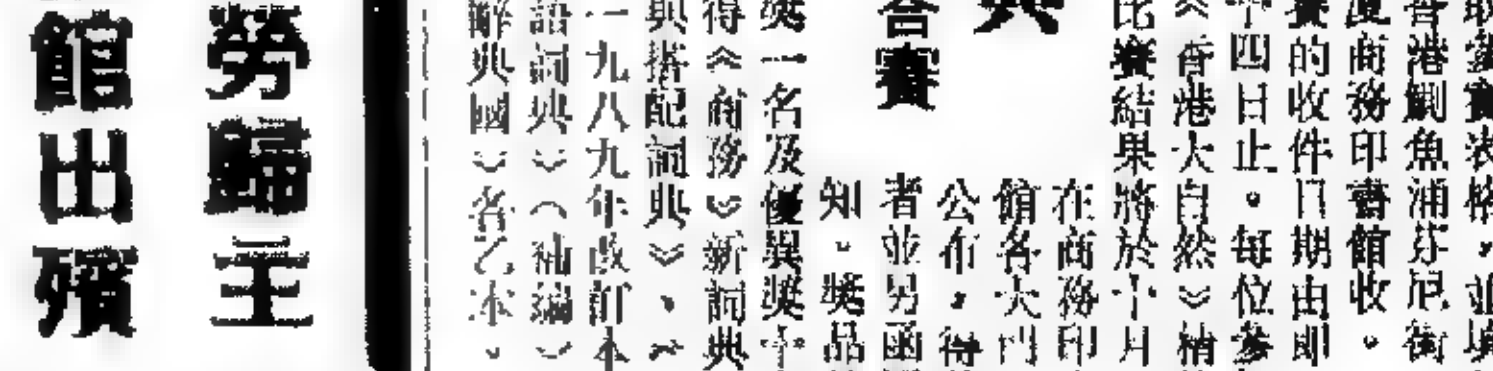 取索賽表格，並填
香港鰂魚涌芬尼街
度商務印書館收。
賽的收件日期由即
四日止。每位參
《香港大自然》精
比賽結果將於十月
在商務印
館各大門
公布，得
者並另函
知。獎品
合賽
獎一名及優異獎十
得《商務》新詞典
典搭配詞典》、《
一九八九年改訂本
語詞典》（袖編）
解典國》各乙本、
勞歸主
館出殯